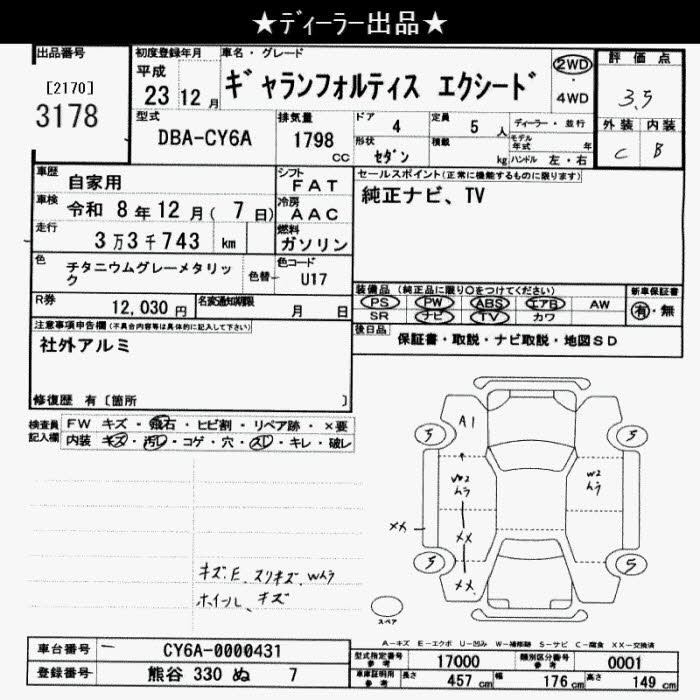 ★ディーラー出品★
出品番号
[2170]
3178
初度登録年月
平成
23 12 月
車名・グレード
ギャランフォルティス エクシード
2WD
4WD
評価点
3.5
外装 内装
C B
型式
DBA-CY6A
排気量
1798
cc
ドア
4
定員
5 人
ディーラー・並行
形状
セダン
積載
kg
モデル
年式 年
ハンドル 左・右
車歴
自家用
シフト
FAT
セールスポイント(正常に機能するものに限ります)
純正ナビ、TV
車検
令和 8年12月( 7日)
冷房
AAC
走行
3万3千743 km
燃料
ガソリン
色
チタニウムグレーメタリッ
ク
色替
色コード
U17
装備品 (純正品に限り○をつけてください)
PS PW ABS エアB AW
SR ナビ TV カワ
新車保証書
有・無
R券
12,030円
名変通知期限
月 日
後日品
保証書・取説・ナビ取説・地図SD
注意事項申告欄(不具合内容等は具体的に記入して下さい)
社外アルミ
修復歴 有〔箇所 〕
検査員
記入欄
FW キズ・飛石・ヒビ割・リペア跡・×要
内装 キズ・汚レ・コゲ・穴・スレ・キレ・破レ
A1
5
5
W2
ムラ
W2
ムラ
××
××
××
5
5
スペア
キズ、E、スリキズ、Wムラ
ホイール、キズ
A-キズ E-エクボ U-凹み W-補修跡 S-サビ C-腐食 XX-交換済
車台番号
CY6A-0000431
型式指定番号
参考
17000
類別区分番号
参考
0001
登録番号
熊谷 330 ぬ 7
車庫証明用
参考
長さ
457 cm
幅
176 cm
高さ
149 cm